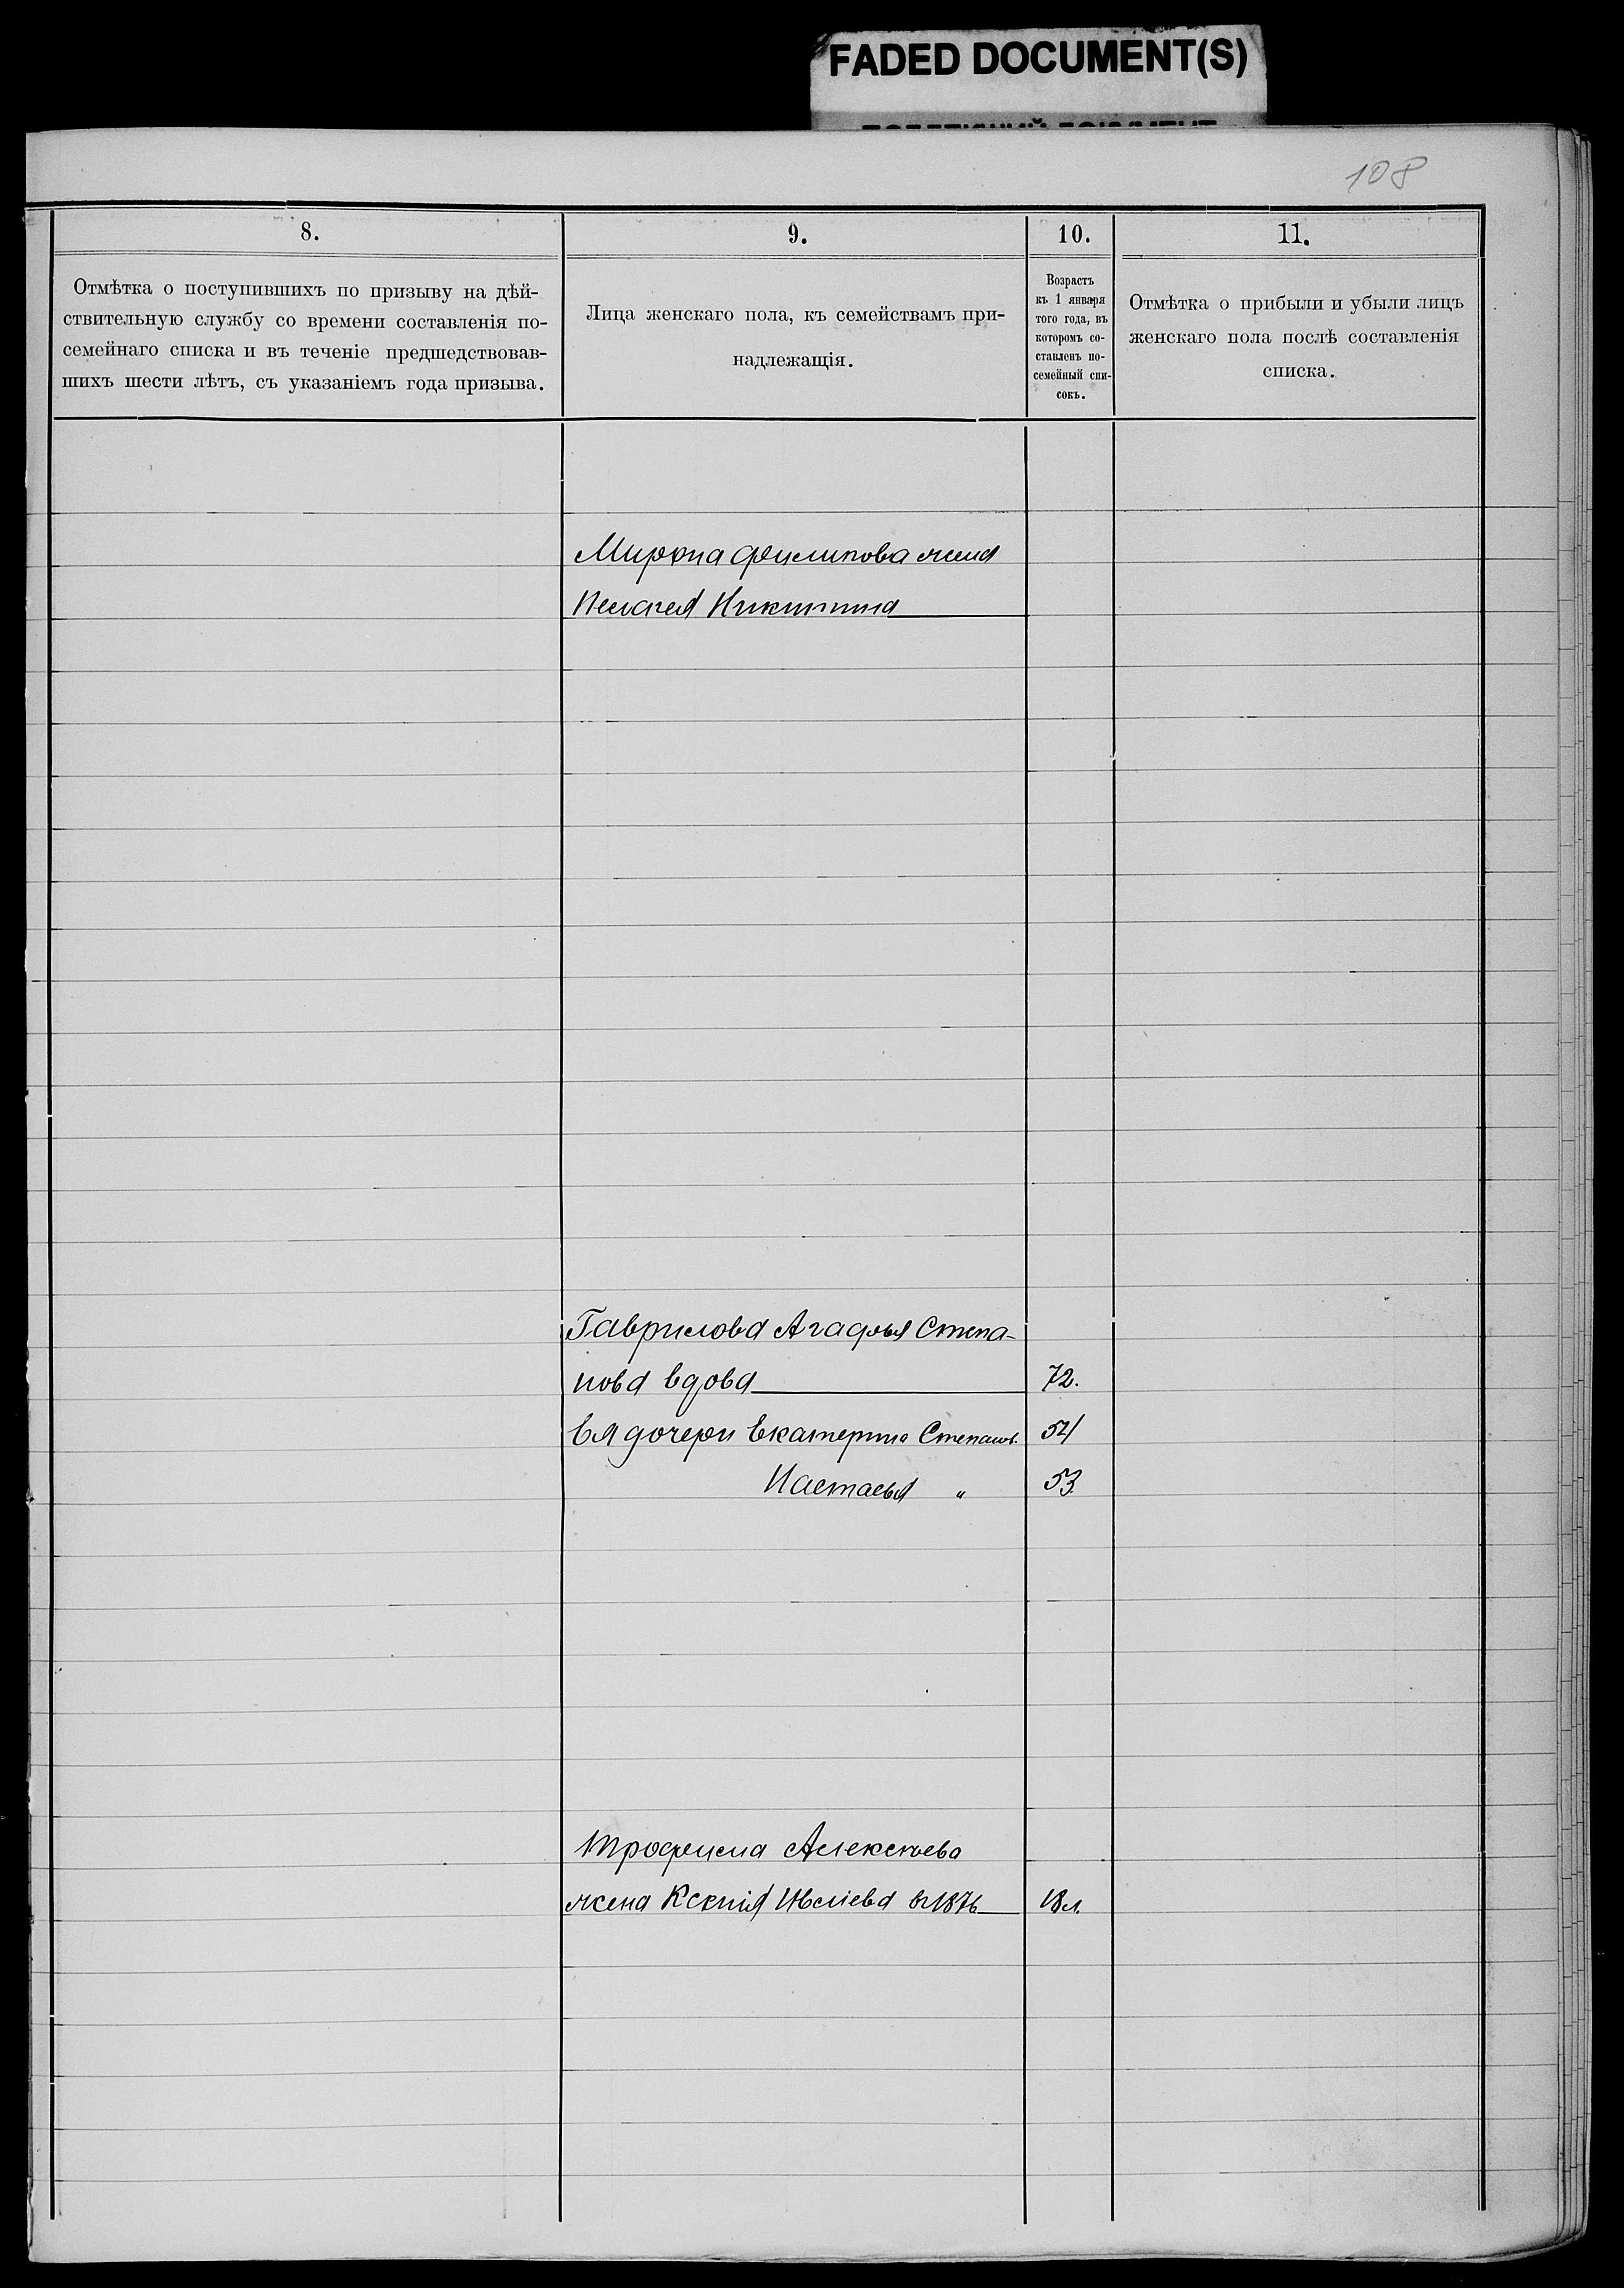 FADED DOCUMENT(S)
108
8.
9.
10.
11.
Отмѣтка о поступившихъ по призыву на дѣй-
ствительную службу со времени составленія по-
семейнаго списка и въ теченіе предшедствовав-
шихъ шести лѣтъ, съ указаніемъ года призыва.
Лица женскаго пола, къ семействамъ при-
надлежащія.
Возрастъ
къ 1 января
того года, въ
которомъ со-
ставленъ по-
семейный спи-
сокъ.
Отмѣтка о прибыли и убыли лицъ
женскаго пола послѣ составленія
списка.
Мирона Филипова жена
Пелагея Никитина
Гаврилова Агафья Степа-
нова вдова 72.
Ея дочери Екатерина Степанов. 54
Настасья " 53
Трофима Алексѣева
жена Ксенія 1876 18 л.